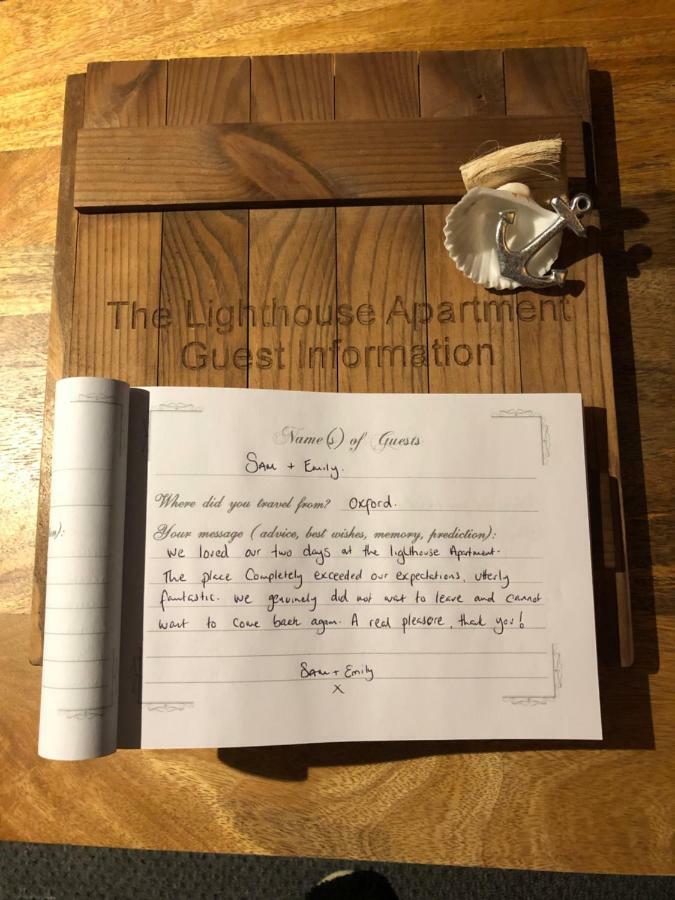 The Lighthouse Apartment
Guest Information
Name(s) of Guests
Sam + Emily.
Where did you travel from? Oxford.
Your message (advice, best wishes, memory, prediction):
We loved our two days at the lighthouse Apartment.
The place completely exceeded our expectations, utterly
fantastic. We genuinely did not wat to leave and cannot
want to come back again. A real pleasure, thank you!
Sam + Emily
x
n):